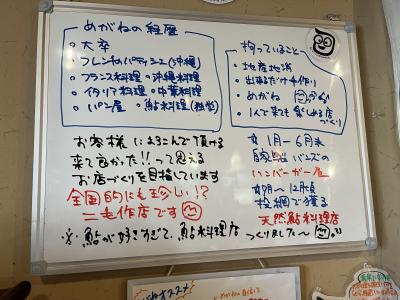 めがねの経歴
・大卒
・フレンチのパティシエ(沖縄)
・フランス料理 ・沖縄料理
・イタリア料理 ・中華料理
・パン屋 ・鮎料理(独学)
拘っていること
・地産地消
・出来るだけ手作り
・めがね
・1人で来ても楽しめる店づくり
お客様によろこんで頂ける
来て良かった!!って思える
お店づくりを目指しています
全国的にも珍しい!?
二毛作店です
※鮎が好きすぎて、鮎料理店
つくりました〜
1月〜6月末
自家製バンズの
ハンバーガー屋
7月〜12月頃
投網で獲る
天然鮎料理店